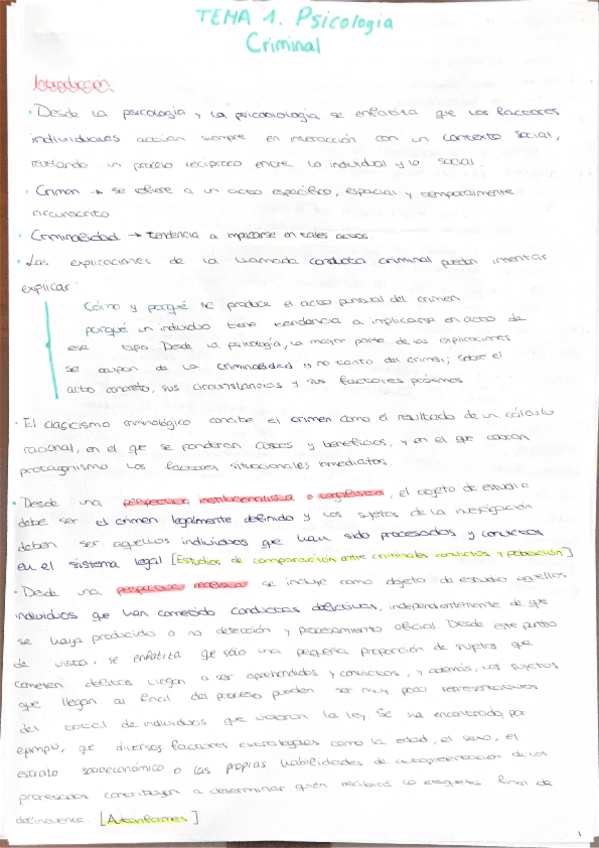 TEMA 1. Psicologia
Criminal
Introducción
· Desde la psicologia y la psicobiologia se enfatiza que los factores
individuales actúan siempre en interacción con un contexto social,
revelando un proceso recíproco entre lo individual y lo social.
· Crimen → se refiere a un acto específico, espacial y temporalmente
circunscrito
· Criminalidad → tendencia a implicarse en tales actos.
· Las explicaciones de la llamada conducta criminal pueden intentar
explicar:
Cómo y porqué se produce el acto puntual del crimen
porqué un individuo tiene tendencia a implicarse en actos de
ese tipo. Desde la psicología, la mayor parte de las explicaciones
se ocupan de la criminalidad y no tanto del crimen; sobre el
acto concreto, sus circunstancias y sus factores próximos.
· El clasicismo criminológico concibe el crimen como el resultado de un cálculo
racional, en el que se ponderan costes y beneficios, y en el que cobran
protagonismo los factores situacionales inmediatos.
· Desde una perspectiva institucionalista o legalista, el objeto de estudio
debe ser el crimen legalmente definido y los sujetos de la investigación
deben ser aquellos individuos que han sido procesados y convictos
en el sistema legal [Estudios de comparación entre criminales convictos y población]
· Desde una perspectiva realista se incluye como objeto de estudio aquellos
individuos que han cometido conductas delictivas, independientemente de que
se haya producido o no detección y procesamiento oficial. Desde este punto
de vista, se enfatiza que sólo una pequeña proporción de sujetos que
cometen delitos llegan a ser aprehendidos y convictos, y además, los sujetos
que llegan al final del proceso pueden ser muy poco representativos
del total de individuos que violaron la ley. Se ha encontrado, por
ejemplo, que diversos factores extralegales como la edad, el sexo, el
estrato socioeconómico o las propias habilidades de autopresentación de los
procesados contribuyen a determinar quien recibirá la etiqueta final de
delincuente. [Autoinformes]
1